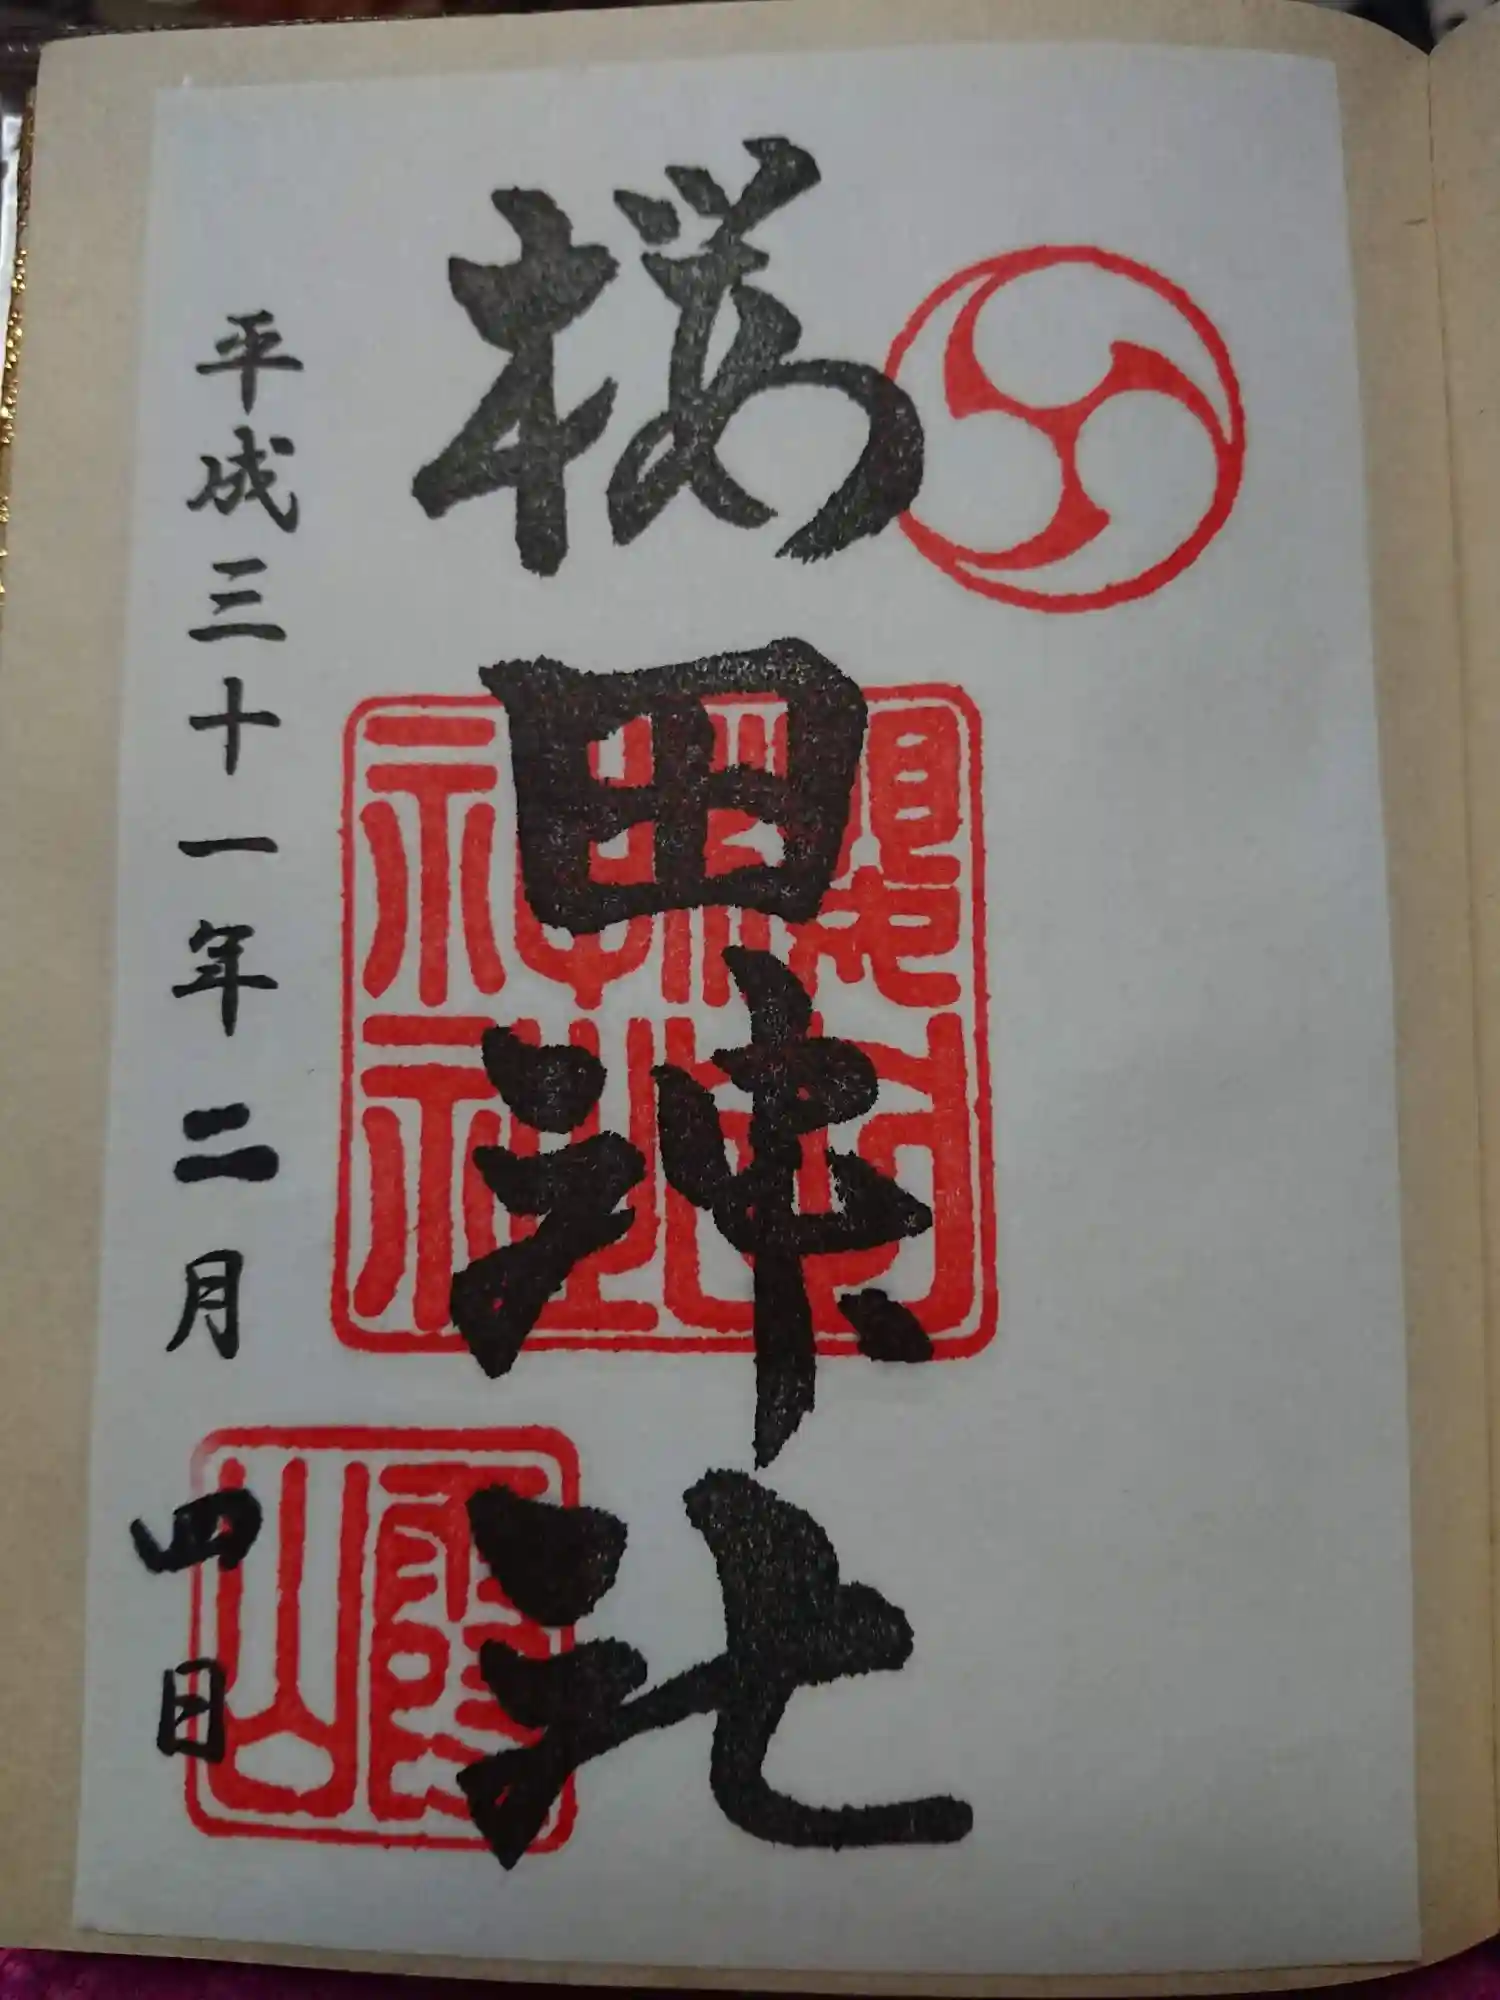 桜田神社
平成三十一年二月四日
櫻田
神社
霞山